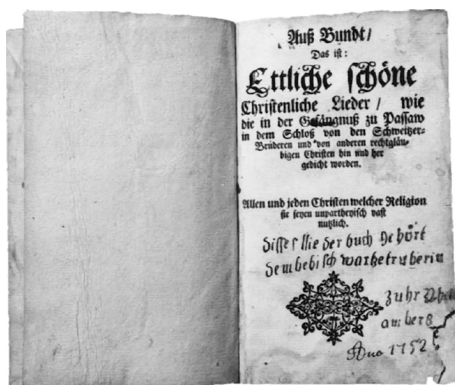 Auß Bundt/
Das ist:
Ettliche schöne
Christenliche Lieder/ wie
die in der Gefängnuß zu Passaw
in dem Schloß von den Schweitzer-
Brüderen und von anderen rechtgläu-
bigen Christen hin und her
gedicht worden.
Allen und jeden Christen welcher Religion
sie seyen unpartheyisch vast
nutzlich.
disses lie der buch gehört
zuhr
am berg
Ano 1752